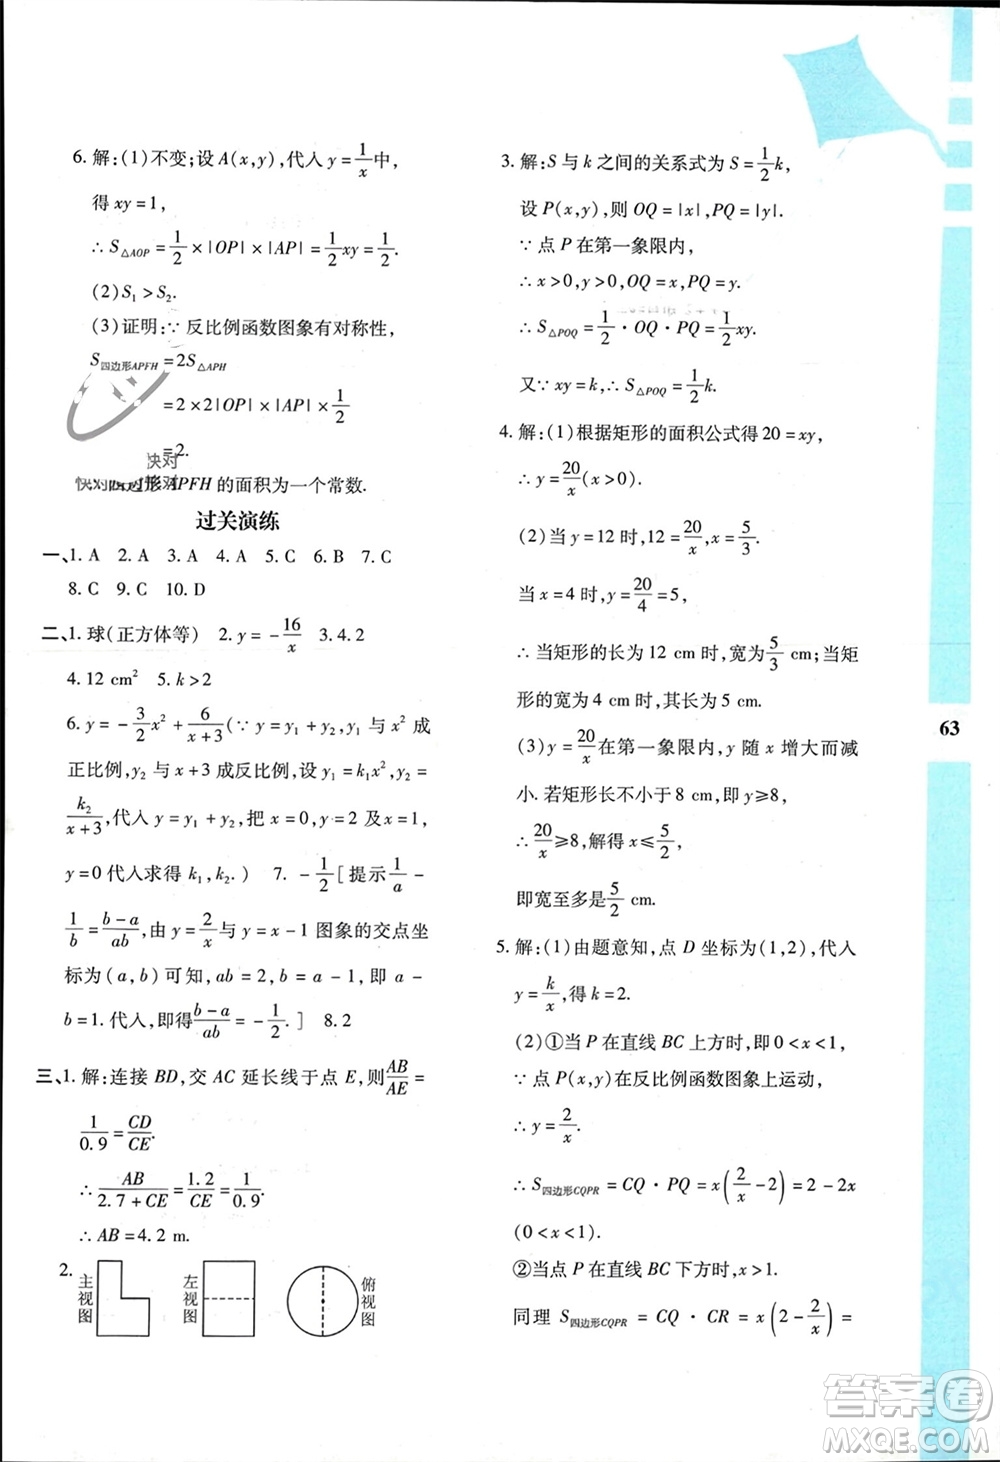 6. 解:(1)不变;设 A(x,y),代人 y=1/x中,
得 xy=1,
∴ S△AOP=1/2×|OP|×|AP|=1/2xy=1/2.
(2)S₁>S₂.
(3)证明:∵ 反比例函数图象有对称性,
S四边形APFH=2S△APH
=2×2|OP|×|AP|×1/2
=2.
四边形 APFH 的面积为一个常数.
快对
快对
过关演练
一、1. A 2. A 3. A 4. A 5. C 6. B 7. C
8. C 9. C 10. D
二、1. 球(正方体等) 2. y=-16/x 3. 4. 2
4. 12 cm² 5. k>2
6. y=-3/2x²+6/(x+3)(∵ y=y₁+y₂,y₁ 与 x² 成
正比例,y₂ 与 x+3 成反比例,设 y₁=k₁x²,y₂=
k₂/(x+3),代入 y=y₁+y₂,把 x=0,y=2 及 x=1,
y=0 代人求得 k₁,k₂.) 7. -1/2[提示1/a-
1/b=(b-a)/ab,由 y=2/x与 y=x-1 图象的交点坐
标为(a,b)可知,ab=2,b=a-1,即 a=2,
b=1. 代人,即得(b-a)/ab=-1/2.] 8. 2
三、1. 解:连接 BD,交 AC 延长线于点 E,则AB/AE=
1/0.9=CD/CE.
∴AB/(2.7+CE)=1.2/CE=1/0.9.
∴ AB=4.2 m.
2. 主视图 左视图 俯视图
3. 解:S 与 k 之间的关系式为 S=1/2k,
设 P(x,y),则 OQ=|x|,PQ=|y|.
∵ 点 P 在第一象限内,
∴ x>0,y>0,OQ=x,PQ=y.
∴ S△POQ=1/2·OQ·PQ=1/2xy.
又∵ xy=k,∴ S△POQ=1/2k.
4. 解:(1)根据矩形的面积公式得 20=xy,
∴ y=20/x(x>0).
(2)当 y=12 时,12=20/x,x=5/3.
当 x=4 时,y=20/4=5,
∴ 当矩形的长为 12 cm 时,宽为5/3 cm;当矩
形的宽为 4 cm 时,其长为 5 cm.
(3)y=20/x在第一象限内,y 随 x 增大而减
小. 若矩形长不小于 8 cm,即 y≥8,
∴20/x≥8,解得 x≤5/2,
即宽至多是5/2 cm.
5. 解:(1)由题意知,点 D 坐标为(1,2),代人
y=k/x,得 k=2.
(2)①当 P 在直线 BC 上方时,即 0<x<1,
∵ 点 P(x,y)在反比例函数图象上运动,
∴ y=2/x.
∴ S四边形CQPR=CQ·PQ=x(2/x-2)=2-2x
(0<x<1).
②当点 P 在直线 BC 下方时,x>1.
同理 S四边形CQPR=CQ·CR=x(2-2/x)=
63
答案圈
MXQE.COM